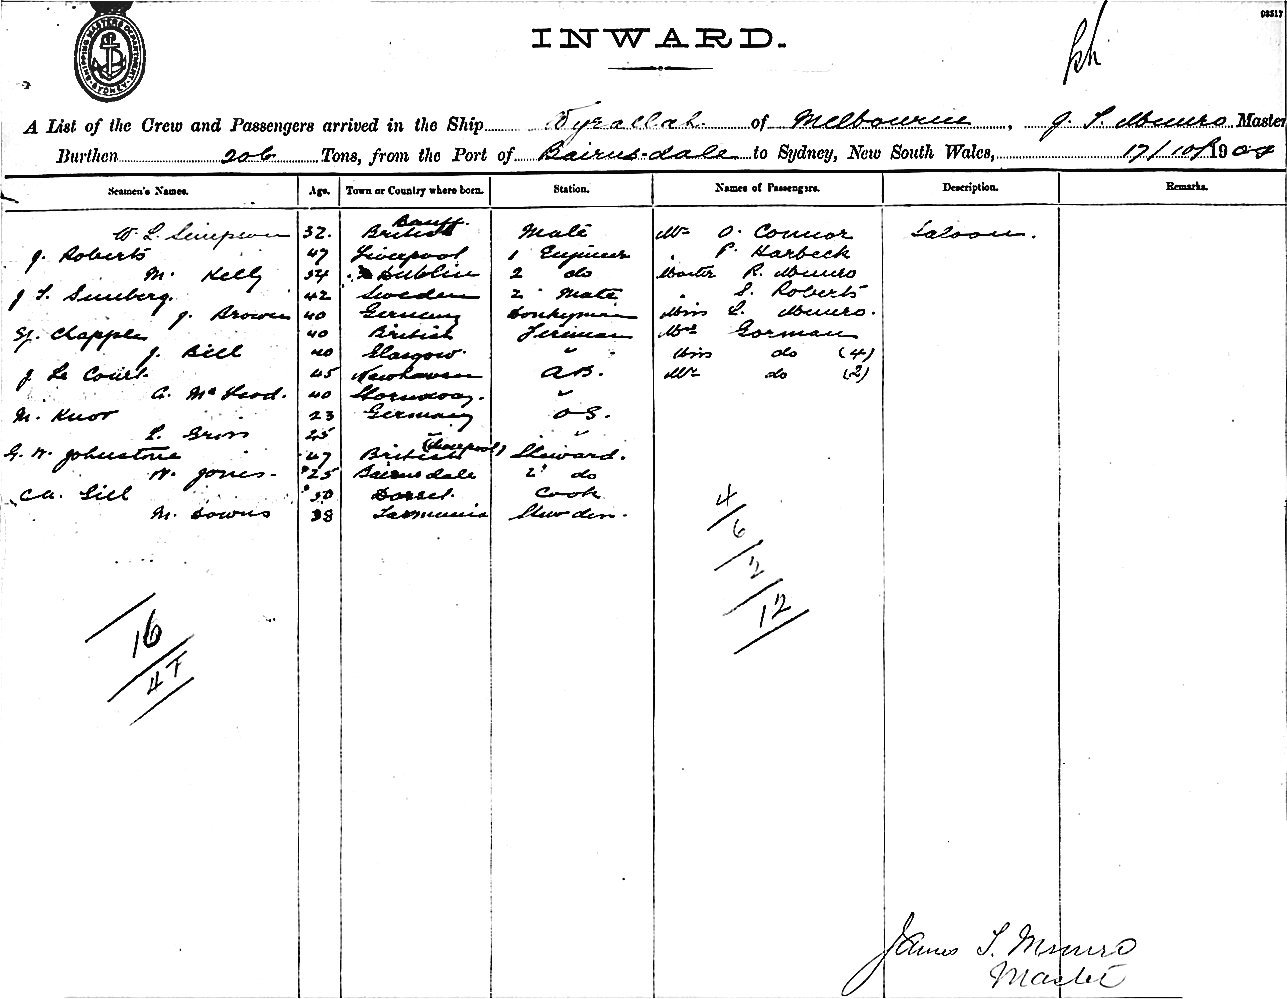 08517
INWARD.
A List of the Crew and Passengers arrived in the Ship Wyrallah of Melbourne, J. S. Munro Master
Burthen 206 Tons, from the Port of Bairnsdale to Sydney, New South Wales, 17/10/1904
Seamen's Names. Age. Town or Country where born. Station. Names of Passengers. Description. Remarks.
Banff.
W. L. Simpson 32. British Mate Mr O. Connor Saloon.
J. Roberts 47 Liverpool 1 Engineer " P. Harbeck
M. Kelly 54 Dublin 2 do Master R. Munro
J S. 42 Sweden 2 Mate " S. Roberts
J. Brown 40 Germany Donkeyman Miss L. Munro.
Chapple 40 British Fireman Mrs Gorman
J. Bell 40 Glasgow. " Miss do (4)
J Le Court 45 Newhaven A.B. Mr do (2)
A. McLeod. 40 Stornoway. "
M. Knor 23 Germany O.S.
25 " "
(Liverpool)
G. W. Johnstone 47 British Steward.
W. Jones. 25 Bairnsdale 2 do
Ch. Gill 50 Dorset. Cook
M. Downs 38 Tasmania Stewdess.
4
6
2
12
16
47
James S. Munro
Master